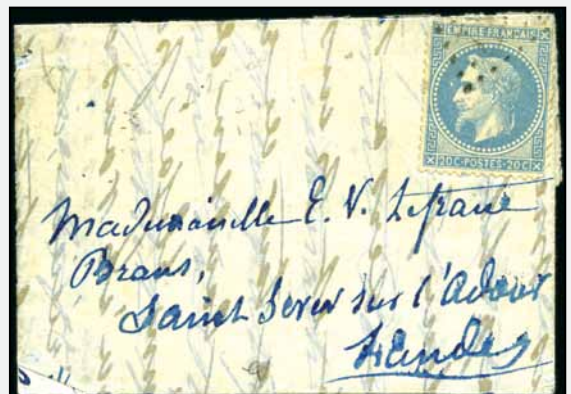 EMPIRE FRANCAIS
20C·POSTES·20C
Mademoiselle E. V. Lefranc
Brans,
Saint Sever sur l'Adour
Landes